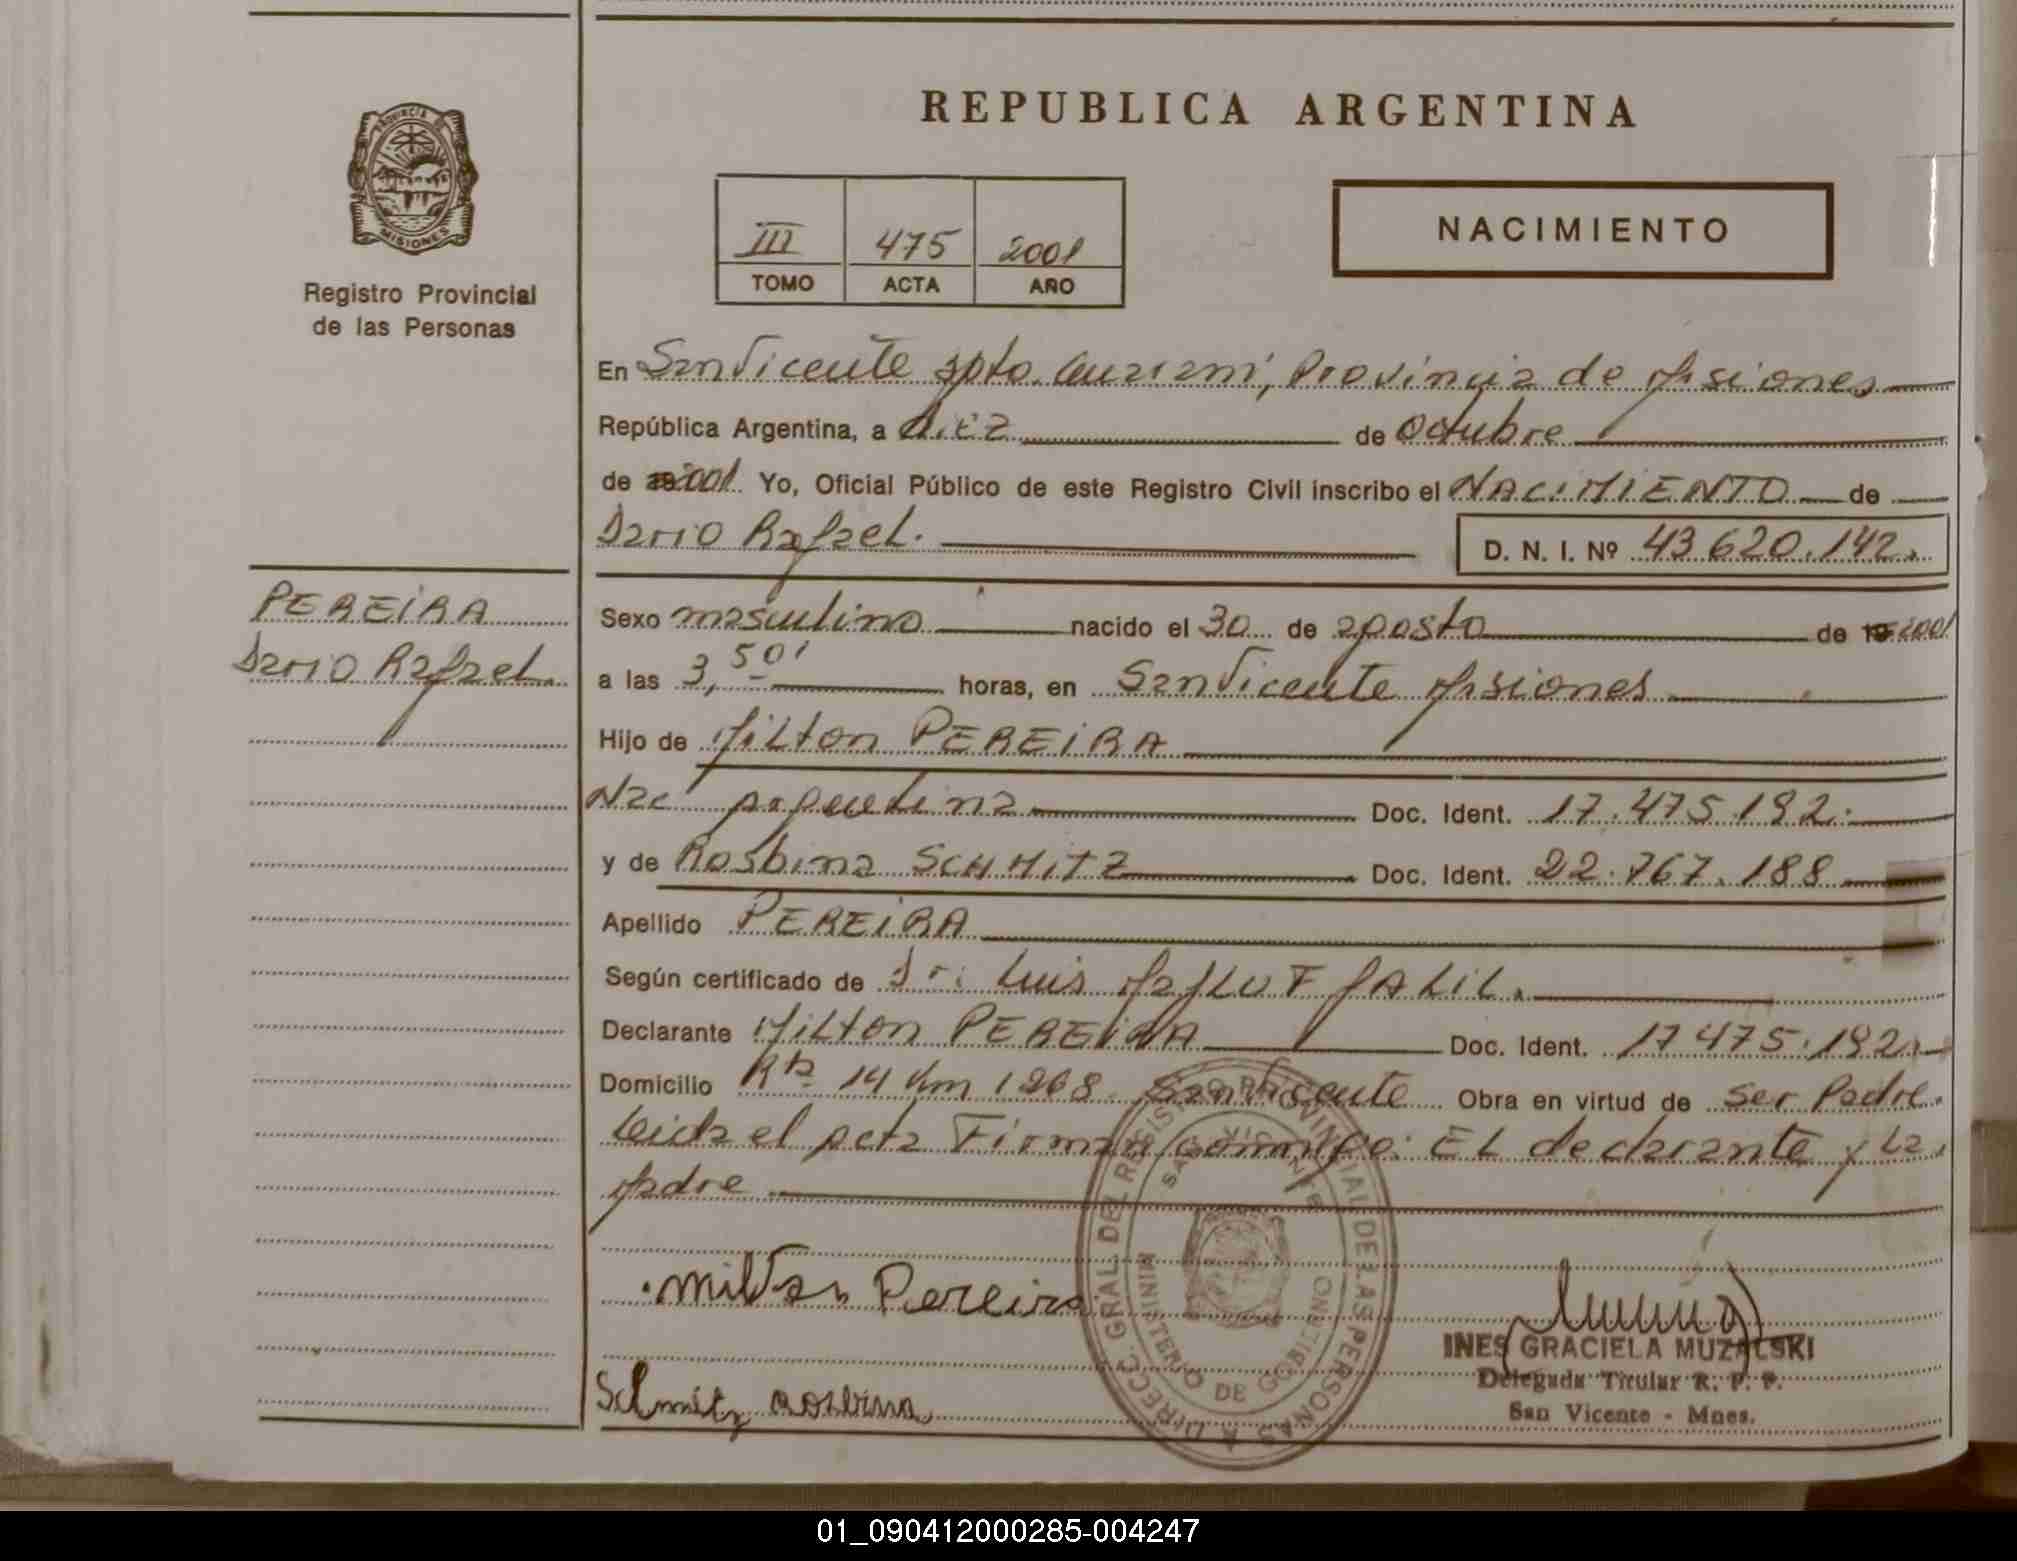 REPUBLICA ARGENTINA
PROVINCIA DE
MISIONES
Registro Provincial
de las Personas
III 475 2001
TOMO ACTA AÑO
NACIMIENTO
En San Vicente Dpto. Guarani, Provincia de Misiones
República Argentina, a diez de Octubre
de 2001 Yo, Oficial Público de este Registro Civil inscribo el NACIMIENTO de
Dario Rafael. D. N. I. Nº 43 620.142.
PEREIRA
Dario Rafael.
Sexo masculino nacido el 30 de agosto de 19 2001
a las 3,50' horas, en San Vicente Misiones
Hijo de Milton PEREIRA
Nac argentina Doc. Ident. 17.475.192.
y de Rosbina SCHMITZ Doc. Ident. 22.767.188
Apellido PEREIRA
Según certificado de Dr. Luis JALIL.
Declarante Milton PEREIRA Doc. Ident. 17 475.192.
Domicilio Rta 14 Km 1268 San Vicente Obra en virtud de ser Padre.
Leida el acta Firman conmigo: EL declarante y La
Madre
Milton Pereira
Schmitz Rosbina
DIRECC. GRAL. DEL REGISTRO PROVINCIAL DE LAS PERSONAS
SAN VICENTE
MINISTERIO DE GOBIERNO
INES GRACIELA MUZALSKI
Delegada Titular R. P. P.
San Vicente - Mnes.
01_090412000285-004247